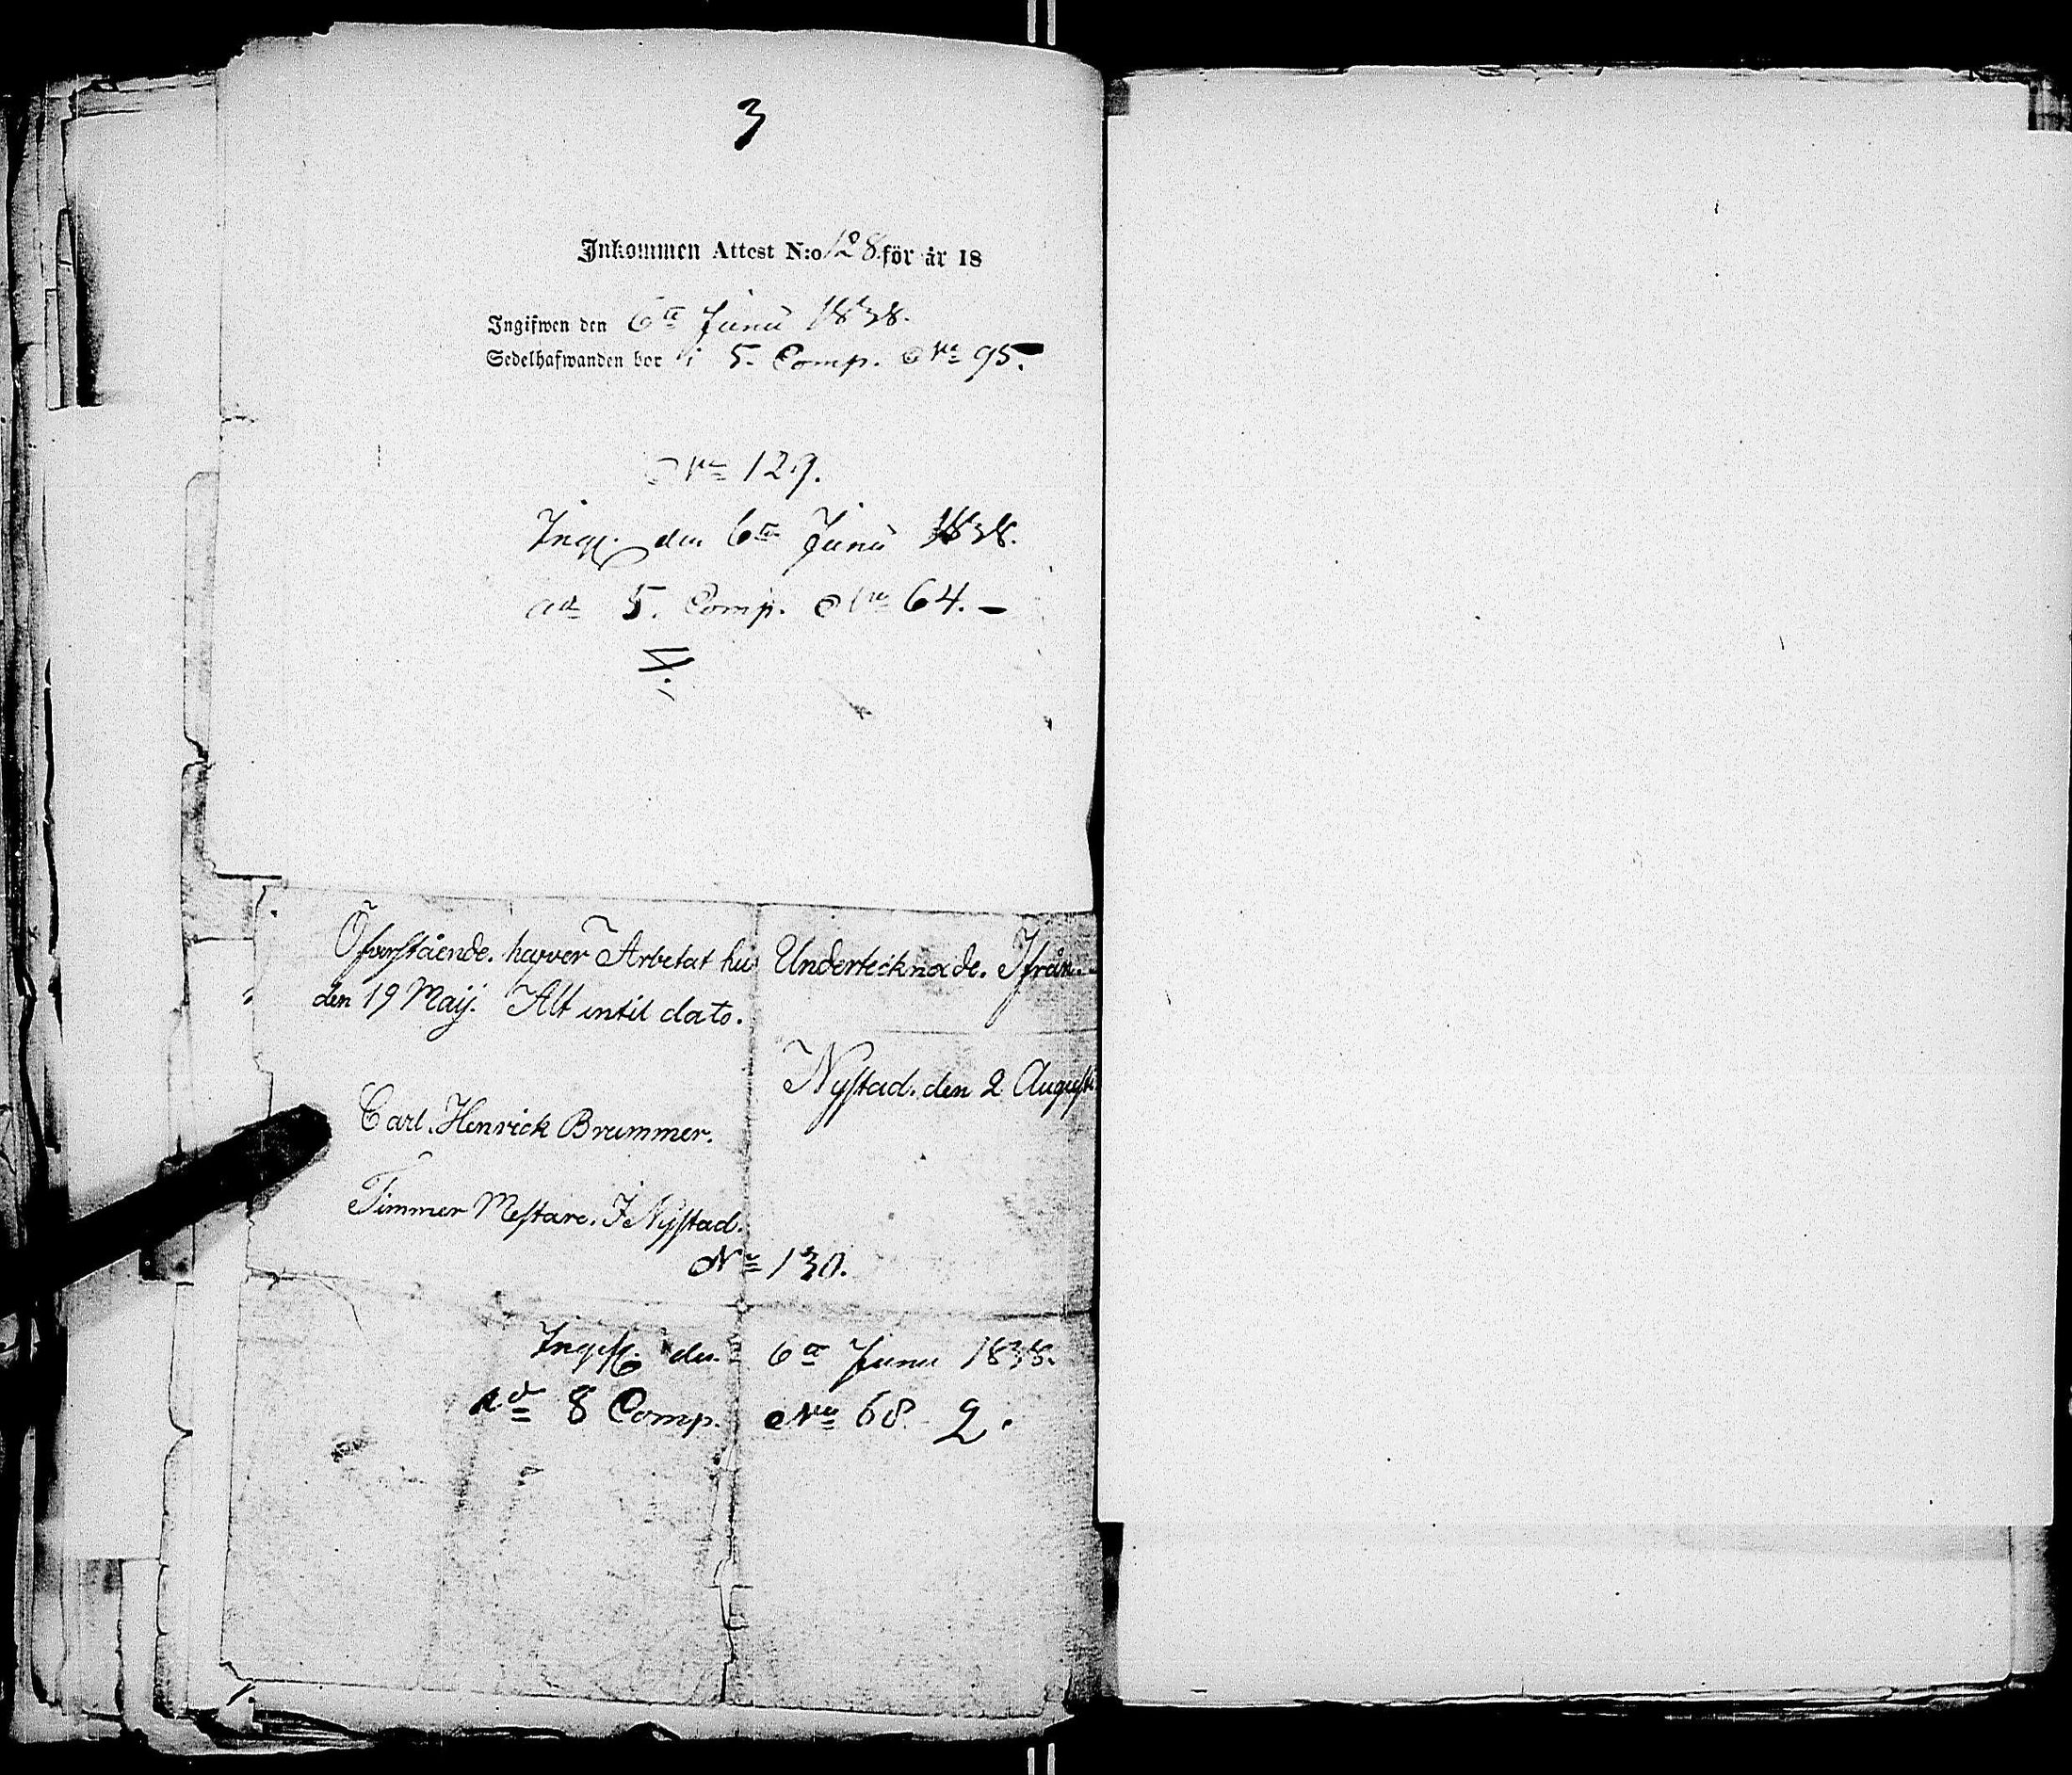 3
Inkommen Attest N:o 128 för år 18
Ingifwen den 6ta Junii 1838.
Sedelhafwanden bor i 5. Comp. No 95.
No 129.
Ingf. den 6ta Junii 1838.
ad 5. Comp. No 64. –
Öfverstående. hafver Arbetat hus Undertecknade. Ifrån
den 19 Maij. Alt intil dato.
Nystad. den 2 Augusti
Carl. Henrick Brummer.
Timmer Mestare. I Nystad.
No 130.
Ingifv. den 6ta Junii 1838.
ad 8 Comp. No 68. 2.